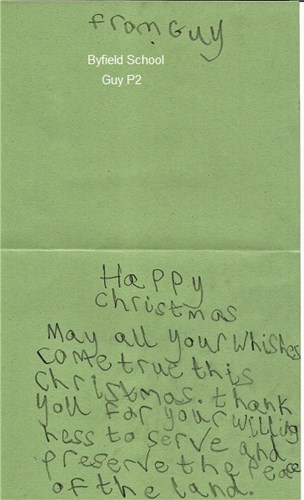 from Guy
Byfield School
Guy P2
Happy
christmas
May all your whishes
come true this
christmas. thank
you for your willing
ness to serve and
preserve the peace
of the land.